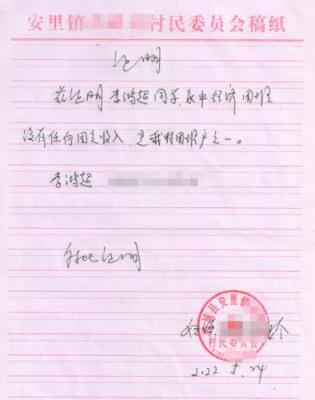 安里镇 村民委员会稿纸
证明
兹证明 李鸿超 同学 家中经济困难
没有任何固定收入 是我村困难户之一。
李鸿超
特此证明
县安里镇
村民委员会
2022.5.24